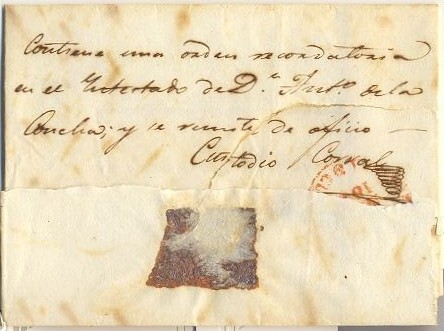 Contiene una orden recordatoria
en el Intestado de D.n Ant.o de la
Concha; y se remite de oficio
Custodio Corral